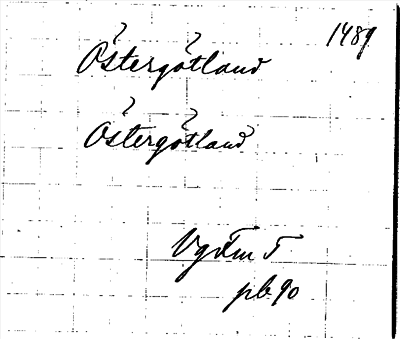 1489
Östergötland
Östergötland
VgFmT
pb 90